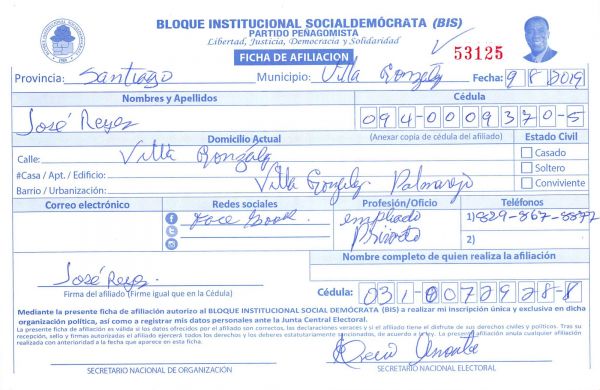 BLOQUE INSTITUCIONAL SOCIALDEMÓCRATA (BIS)
PARTIDO PEÑAGOMISTA
Libertad, Justicia, Democracia y Solidaridad
FICHA DE AFILIACION
53125
Provincia: Santiago Municipio: Villa Gonzalez Fecha: 9 8 2019
Nombres y Apellidos Cédula
José Reyes 094-0009370-5
Domicilio Actual (Anexar copia de cédula del afiliado) Estado Civil
Calle: Villa Gonzalez Casado
#Casa / Apt. / Edificio: Soltero
Barrio / Urbanización: Villa Gonzalez Palmarejo Conviviente
Correo electrónico Redes sociales Profesión/Oficio Teléfonos
Face Book. empleado 1) 829-867-8877
Privado 2)
Nombre completo de quien realiza la afiliación
José Reyes
Firma del afiliado (Firme igual que en la Cédula) Cédula: 031-0072928-8
Mediante la presente ficha de afiliación autorizo al BLOQUE INSTITUCIONAL SOCIAL DEMÓCRATA (BIS) a realizar mi inscripción única y exclusiva en dicha
organización política, así como a registrar mis datos personales ante la Junta Central Electoral.
La presente ficha de afiliación es válida si los datos ofrecidos por el afiliado son correctos, las declaraciones veraces y si el afiliado tiene el disfrute de sus derechos civiles y políticos. Tras su
recepción, sello y firmas autorizadas el afiliado ejercerá todos los derechos y los deberes estatutariamente sancionados, de acuerdo a la ley. La presente afiliación anula cualquier afiliación
realizada con anterioridad a la fecha que aparece en esta ficha.
SECRETARIO NACIONAL DE ORGANIZACIÓN SECRETARIO NACIONAL ELECTORAL